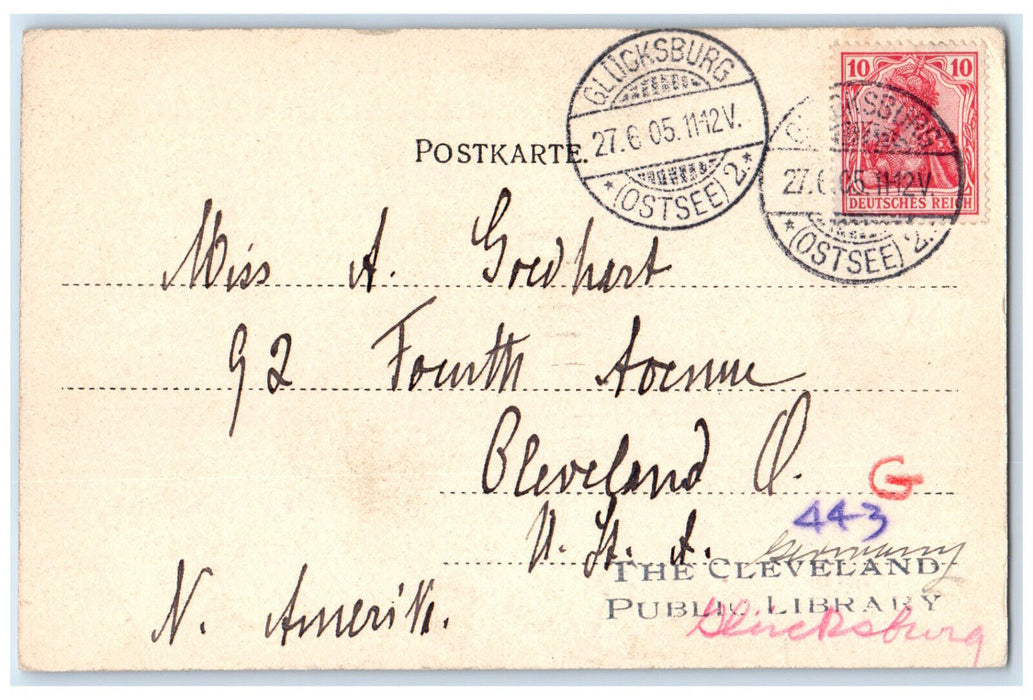 GLÜCKSBURG
27.6.05.11-12V.
*(OSTSEE) 2.*
10 10
DEUTSCHES REICH
GLÜCKSBURG
27.6.05.11-12V.
*(OSTSEE) 2.*
POSTKARTE.
Miss A. Goedhart
92 Fourth Avenue
Cleveland O.
G
443
U. St. A. Germany
THE CLEVELAND
N. Amerik. PUBLIC LIBRARY
Glücksburg